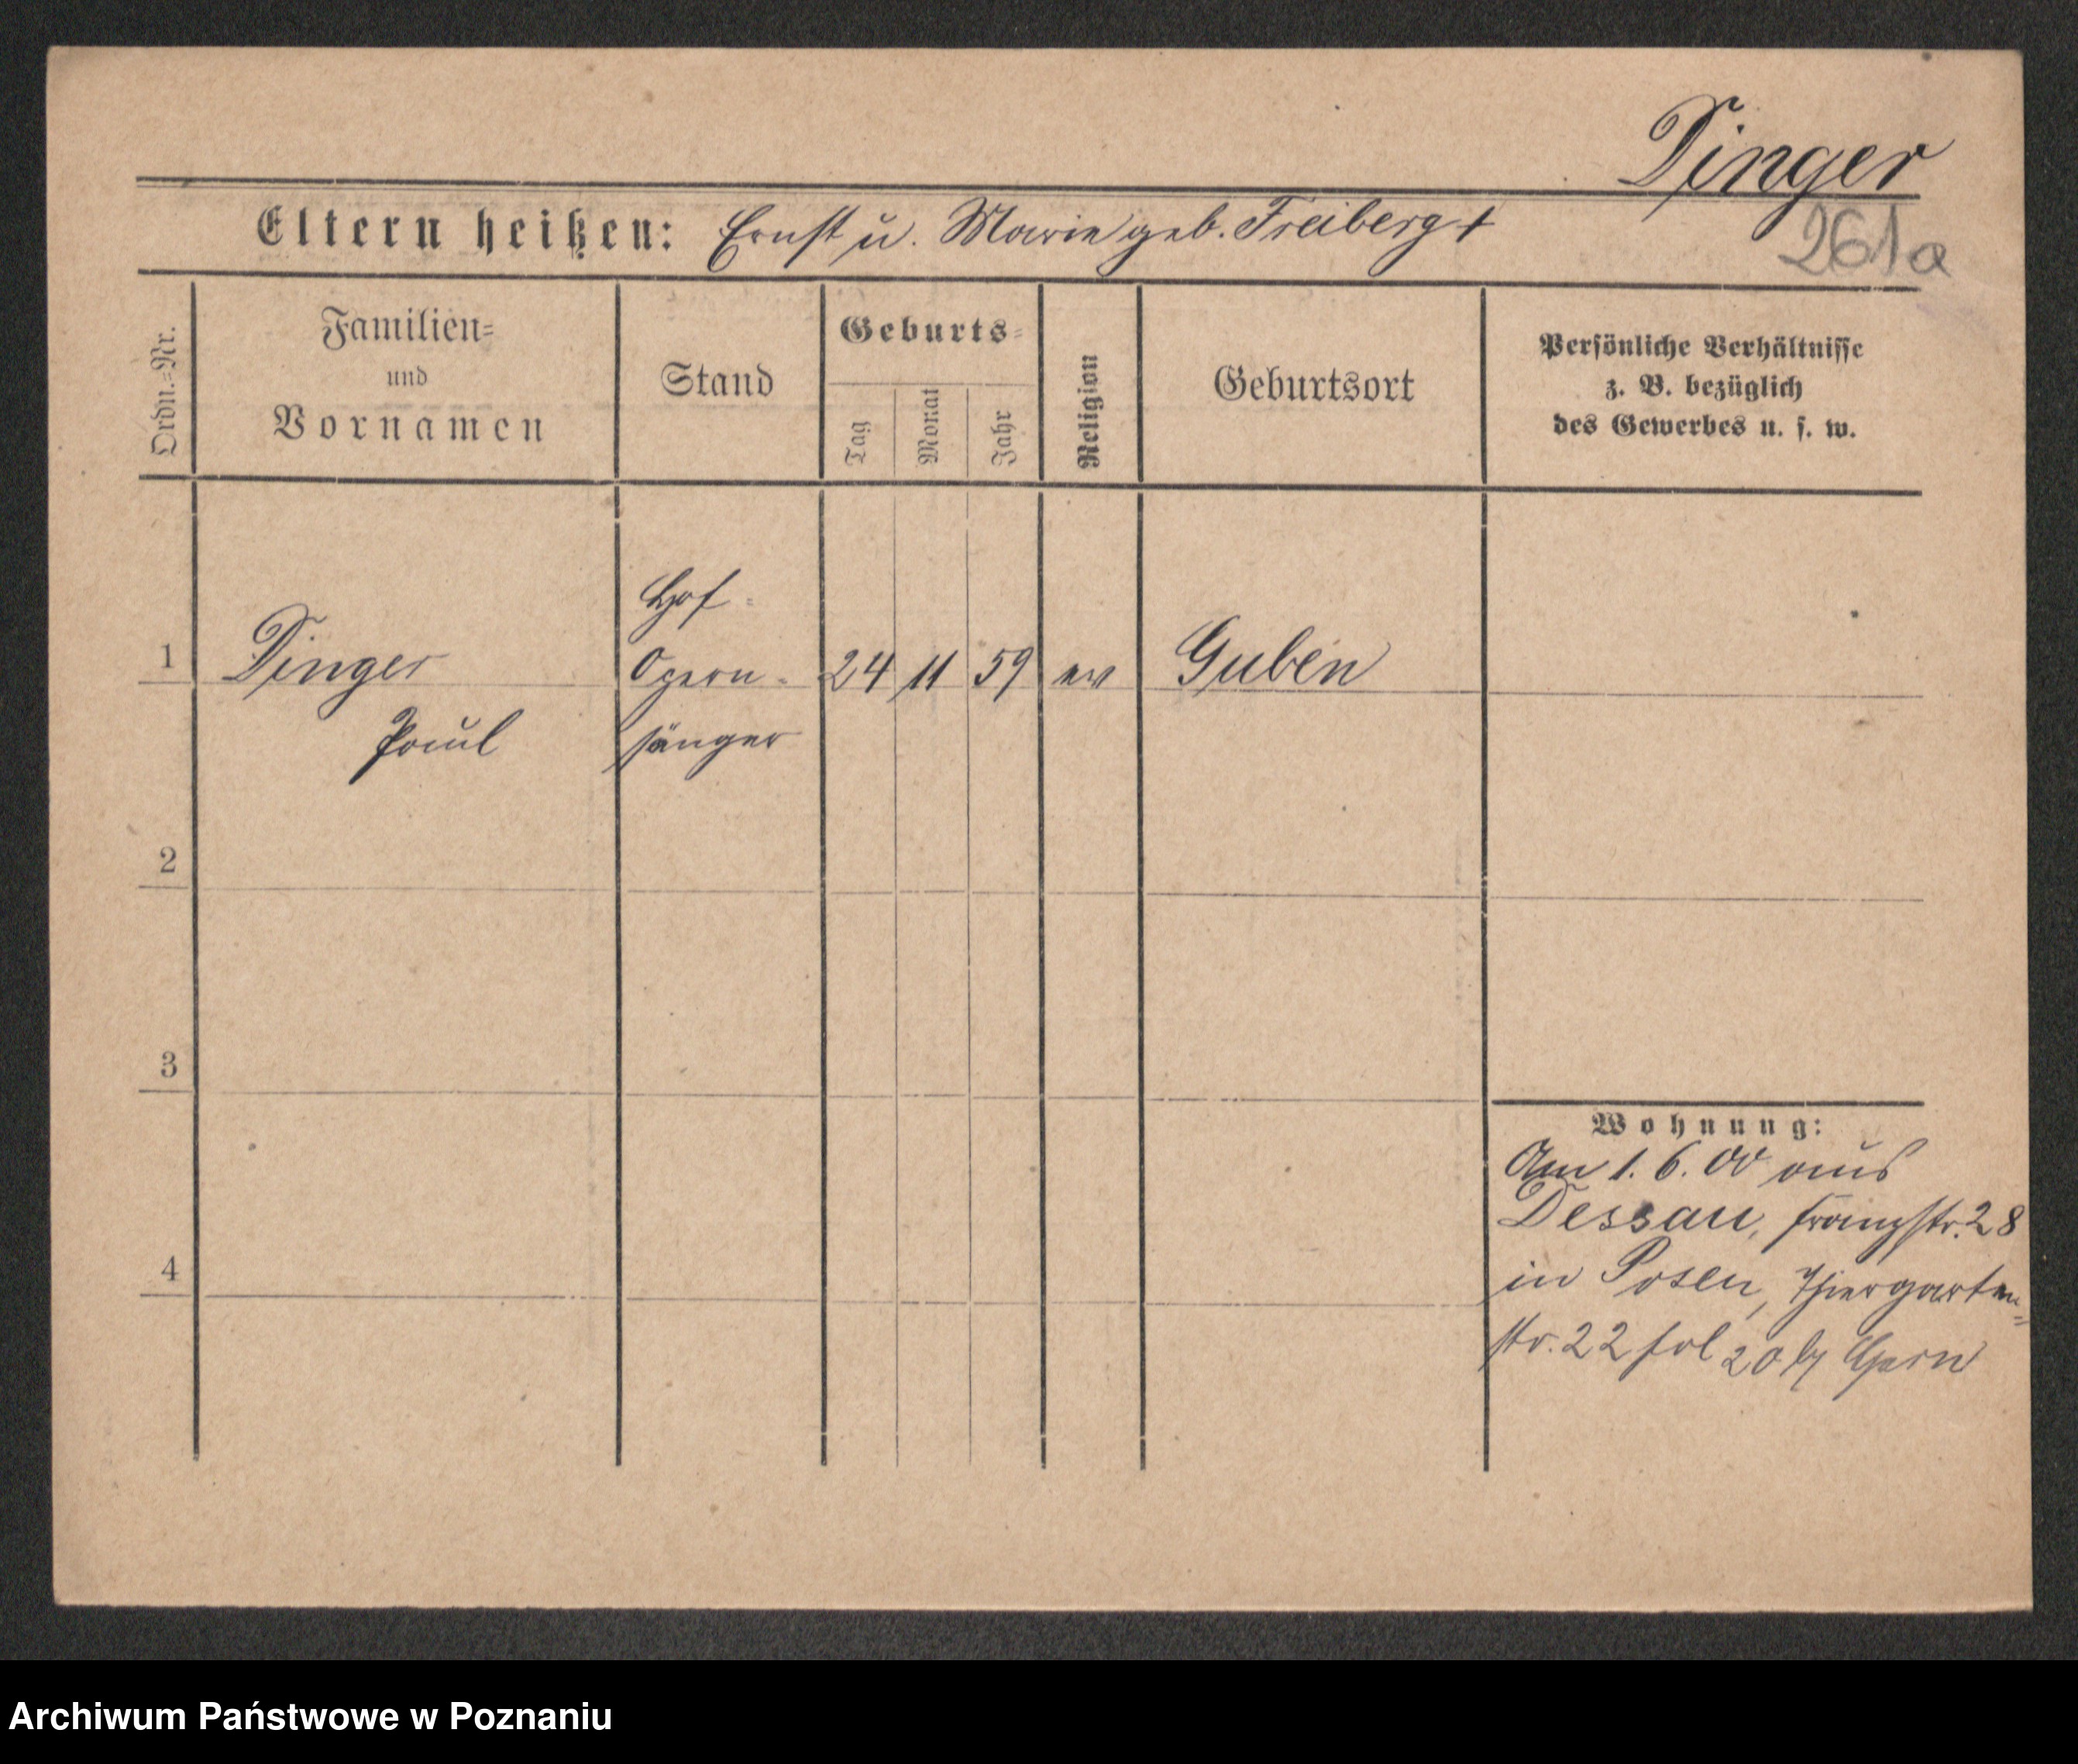 Dinger
261a
Eltern heißen: Ernst u. Marie geb. Freiberg +
Ordn.=Nr.
Familien=
und
Vornamen
Stand
Geburts=
Tag
Monat
Jahr
Religion
Geburtsort
Persönliche Verhältnisse
z. B. bezüglich
des Gewerbes u. s. w.
1 Dinger
Paul
Hof=
Opern=
sänger
24 11 59 ev Guben
2
3
4
Wohnung:
Am 1. 6. 00 aus
Dessau, Franzstr. 28
in Posen, Thiergarten=
str. 22 fol 20 b/
Archiwum Państwowe w Poznaniu